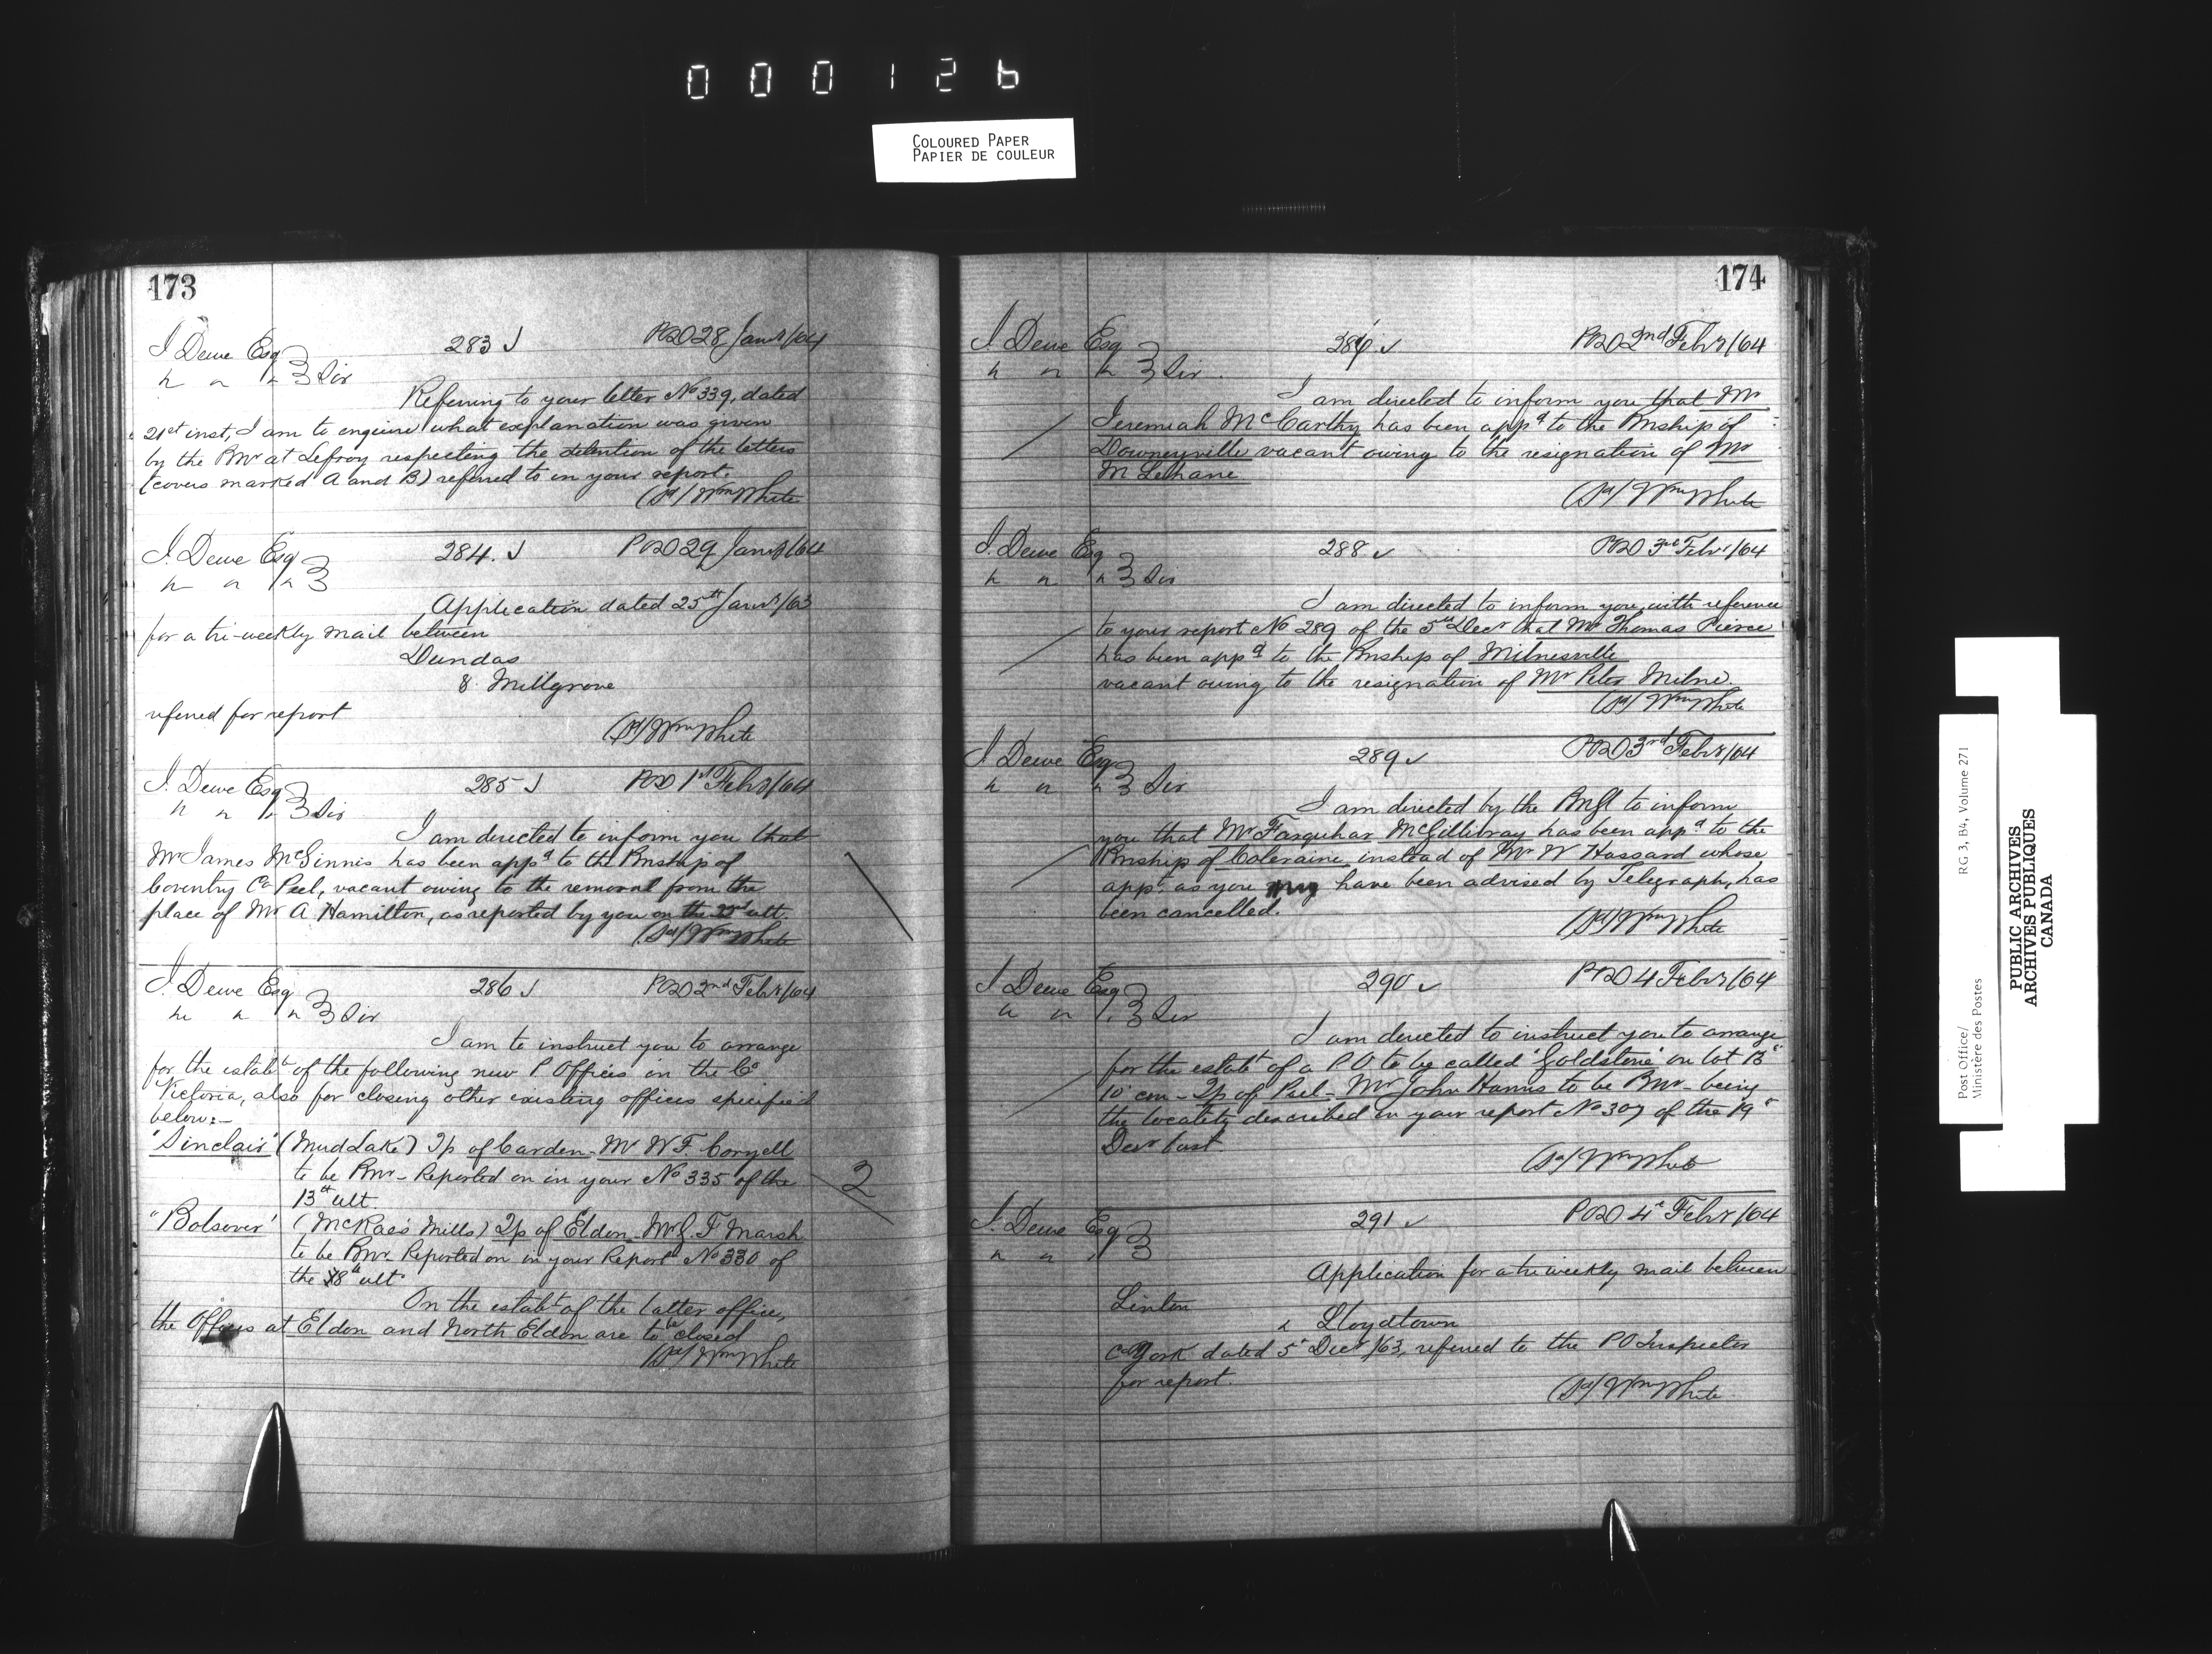 000126
COLOURED PAPER
PAPIER DE COULEUR
173
J. Dewe Esq 283 POD 28 Jany/64
" " " Sir
Referring to your letter No 339, dated
21st inst, I am to enquire what explanation was given
by the Pmr at Lefroy respecting the detention of the letters
(covers marked A and B) referred to in your report.
(Sd/ Wm White
J. Dewe Esq 284. POD 29 Jany/64
" " "
Application dated 25th Jany/63
for a tri-weekly mail between
Dundas
& Millgrove
referred for report
(Sd/ Wm White
J. Dewe Esq 285 POD 1st Feby/64
" " " Sir
I am directed to inform you that
Mr James McGinnis has been appd to the Pmship of
Coventry Co Peel, vacant owing to the removal from the
place of Mr A. Hamilton, as reported by you on the ult.
(Sd/ Wm White
J. Dewe Esq 286 POD 2nd Feby/64
" " " Sir
I am to instruct you to arrange
for the estabt of the following new P. Offices in the Co
Victoria, also for closing other existing offices specified
below:-
"Sinclair" (Mud Lake) Tp of Carden - Mr W F. Coryell
to be Pmr - Reported on in your No 335 of the
13th ult.
2
"Bolsover" (McRae's Mills) Tp of Eldon - Mr G. F Marsh
to be Pmr. Reported on in your Report No 330 of
the 8th ult.
On the estabt of the latter office,
the Offices at Eldon and North Eldon are to be closed
(Sd/ Wm White
174
J. Dewe Esq POD 2nd Feby/64
" " " Sir.
I am directed to inform you that Mr
Jeremiah McCarthy has been appd to the Pmship of
Downeyville vacant owing to the resignation of Mr
M Lehane
(Sd/ Wm White
J. Dewe Esq 288 POD 3rd Feby/64
" " " Sir
I am directed to inform you, with reference
to your report No 289 of the 5th Decr that Mr Thomas Pierce
has been appd to the Pmship of Milnesville
vacant owing to the resignation of Mr Peter Milne.
(Sd/ Wm White
J. Dewe Esq 289 POD 3rd Feby/64
" " " Sir
I am directed by the PmGl to inform
you that Mr Farquhar McGillivray has been appd to the
Pmship of Coleraine instead of Mr W Hassard whose
appt. as you may have been advised by Telegraph, has
been cancelled.
(Sd/ Wm White
J. Dewe Esq 290 POD 4 Feby/64
" " " Sir
I am directed to instruct you to arrange
for the estabt of a P O to be called "Goldstone" on lot 13
10 con - Tp of Peel - Mr John Harris to be Pmr - being
the locality described in your report No 307 of the 19"
Decr last.
(Sd/ Wm White
J. Dewe Esq 291 POD 4" Feby/64
" " "
Application for a tri weekly mail between
Linton
& Lloydtown
Co York dated 5" Decr /63, referred to the PO Inspector
for report.
(Sd/ Wm White
Post Office/ RG 3, B4, Volume 271
Ministère des Postes
PUBLIC ARCHIVES
ARCHIVES PUBLIQUES
CANADA